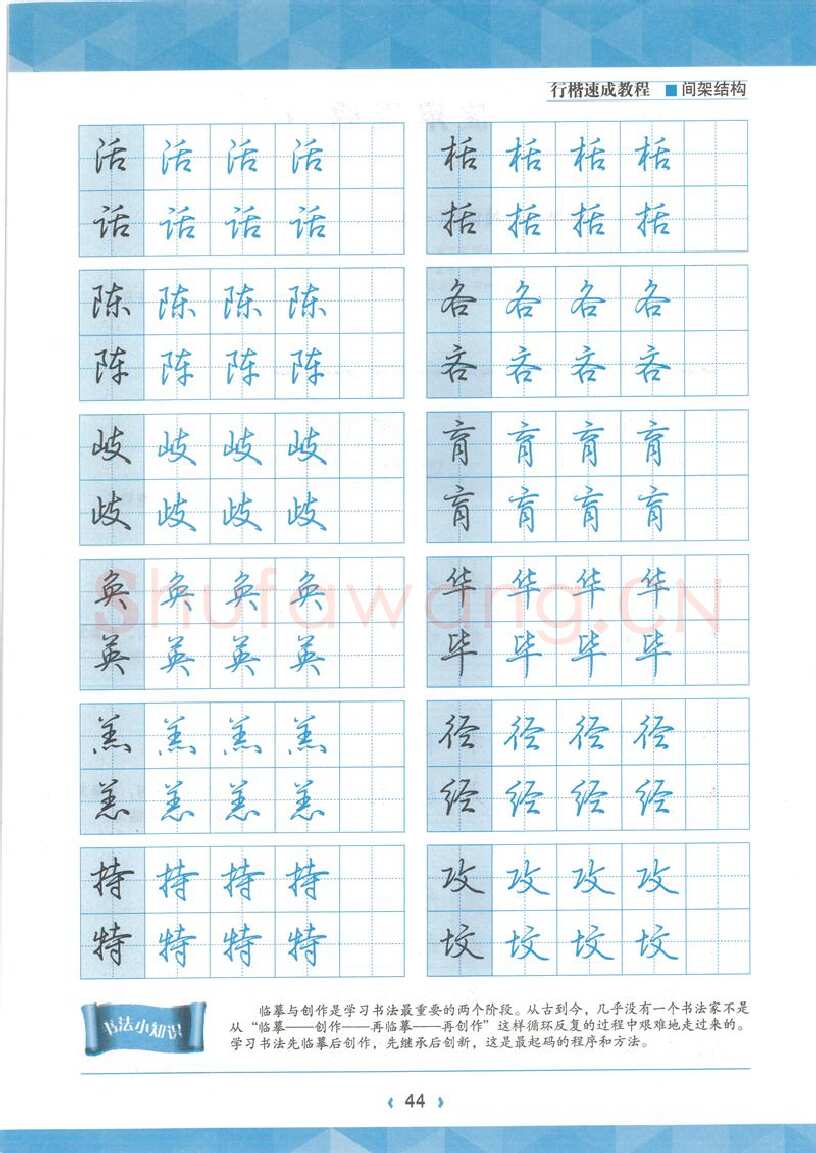 行楷速成教程 ■ 间架结构
活 活 活 活
话 话 话 话
陈 陈 陈 陈
阵 阵 阵 阵
岐 岐 岐 岐
歧 歧 歧 歧
奂 奂 奂 奂
英 英 英 英
羔 羔 羔 羔
恙 恙 恙 恙
持 持 持 持
特 特 特 特
栝 栝 栝 栝
括 括 括 括
各 各 各 各
吝 吝 吝 吝
育 育 育 育
肓 肓 肓 肓
华 华 华 华
毕 毕 毕 毕
径 径 径 径
经 经 经 经
攻 攻 攻 攻
坟 坟 坟 坟
Shufawang.CN
书法小知识
临摹与创作是学习书法最重要的两个阶段。从古到今，几乎没有一个书法家不是
从“临摹——创作——再临摹——再创作”这样循环反复的过程中艰难地走过来的。
学习书法先临摹后创作，先继承后创新，这是最起码的程序和方法。
44